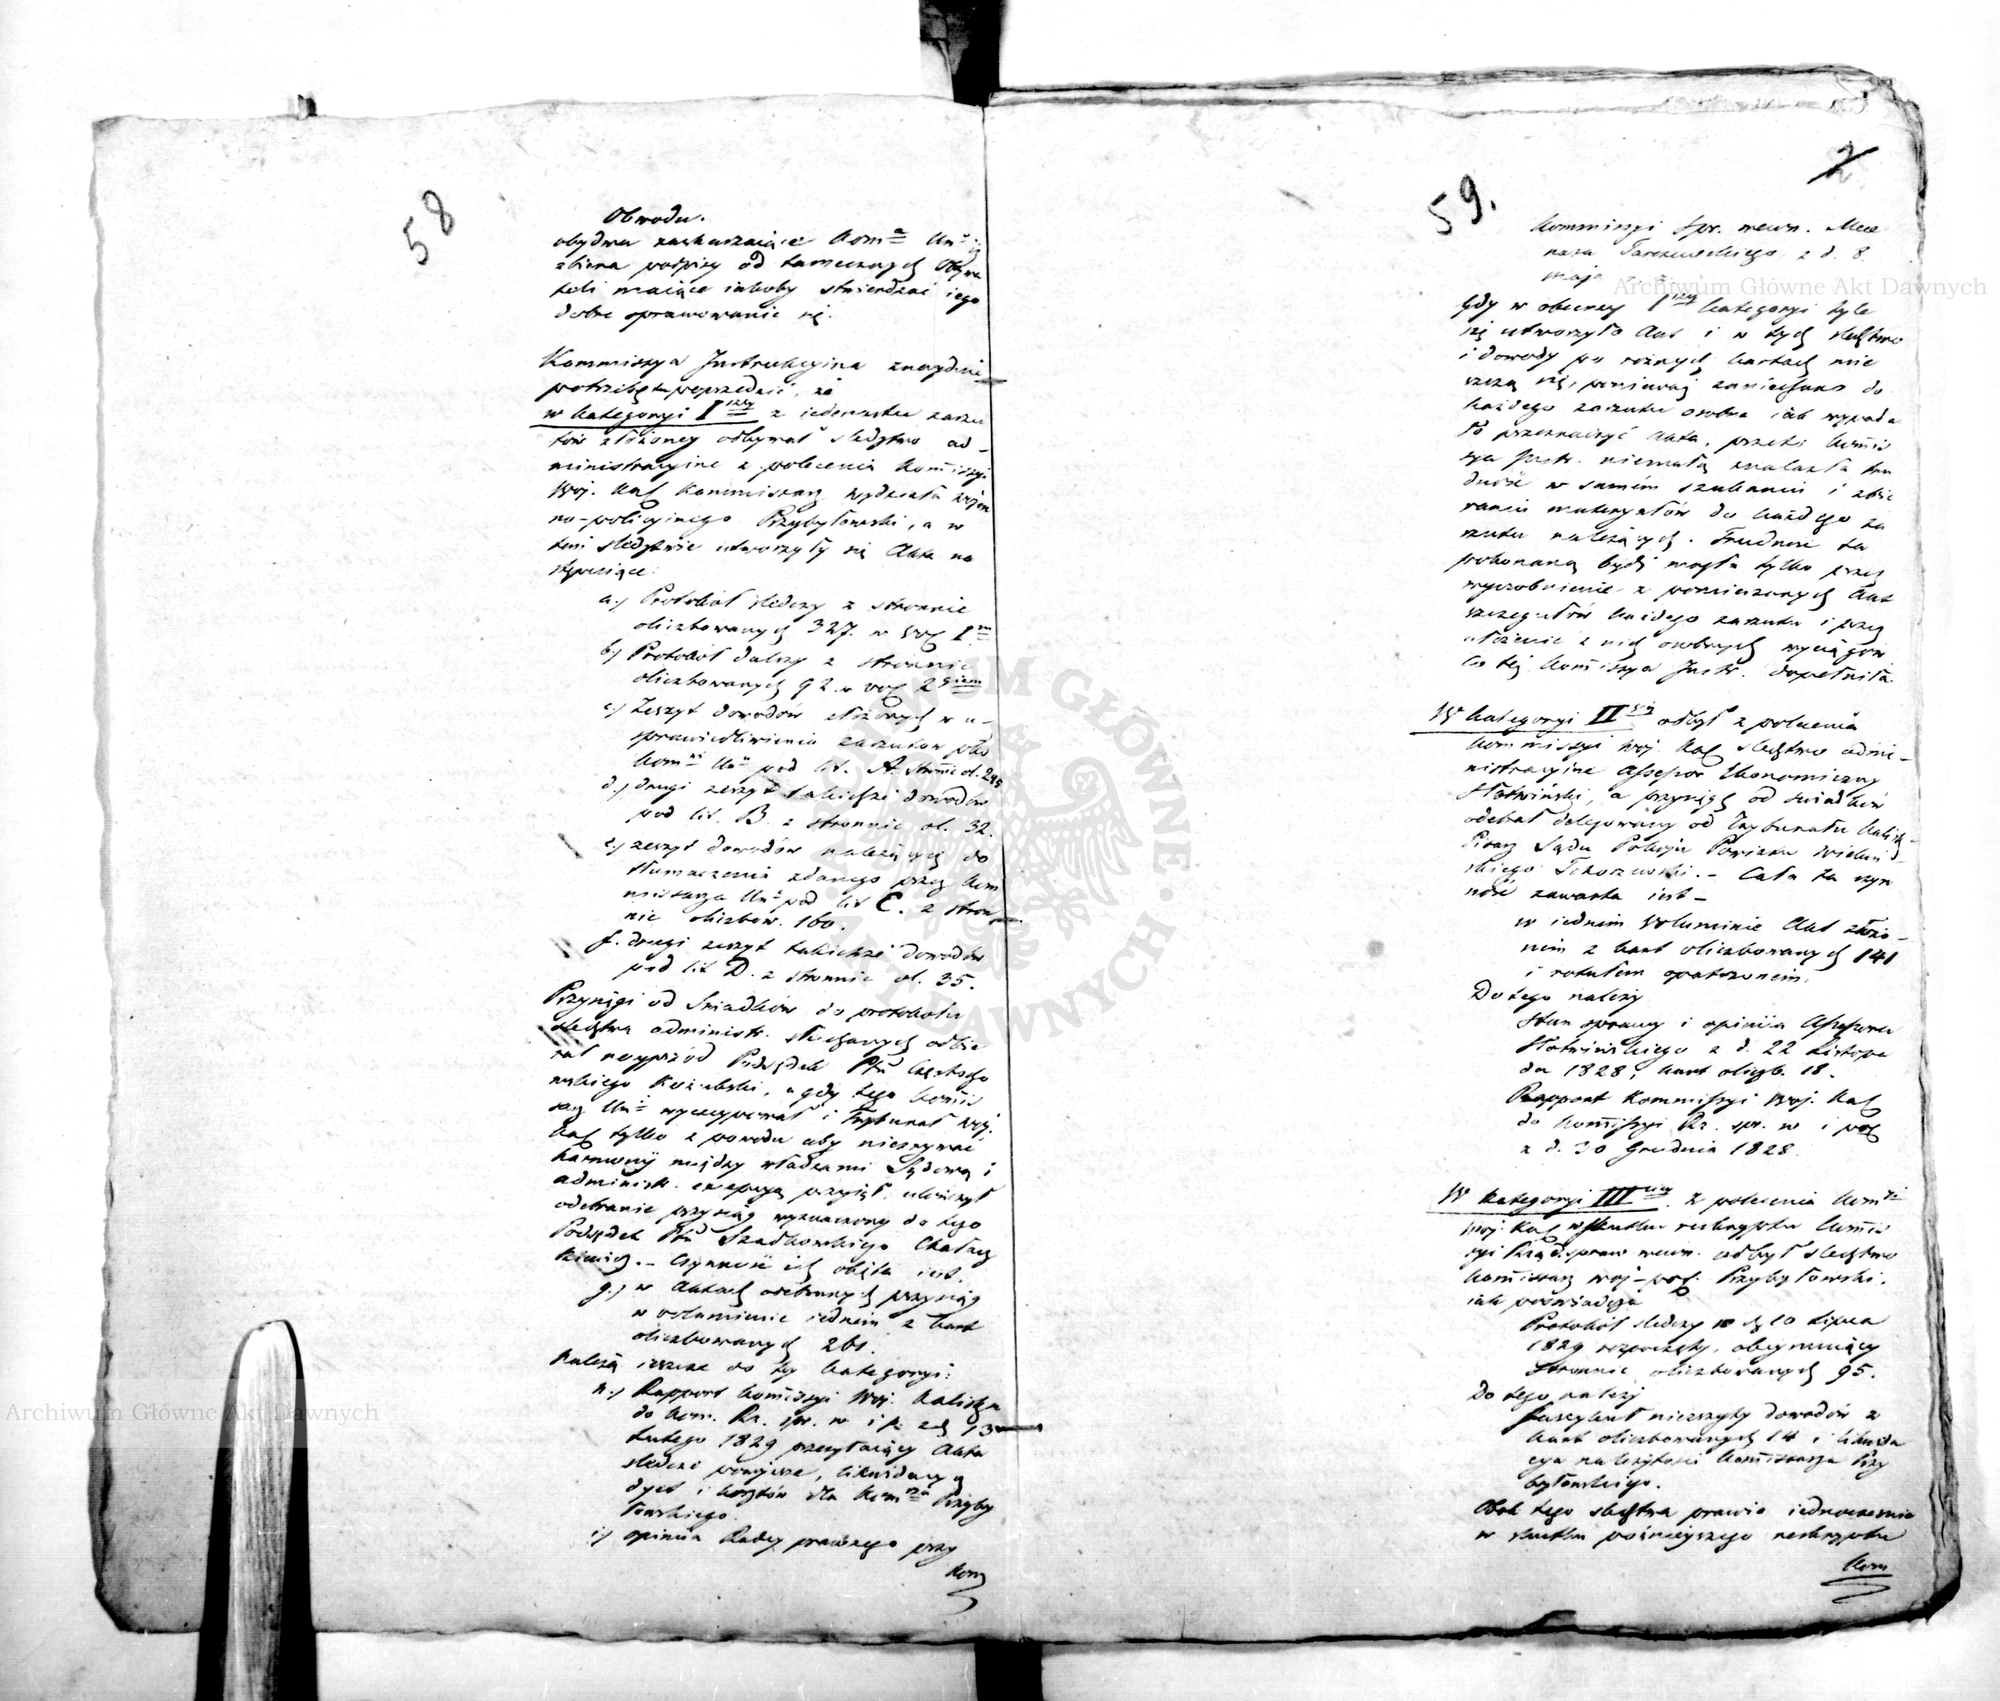 58
Obwodu.
obydwa zaskarzaiące Kom.a Un.o iż
zbiera podpisy od tamecznych Obywa
teli maiące iakoby stwierdzać iego
dobre sprawowanie się.
Kommissya Instrukcyina znayduie
potrzebę tu poprzedzić, że
w kategoryi I szey z iedenastu zarzu
tów złożoney odbywał śledztwo ad-
ministracyine z polecenia Kommissyi
Woj. Kal. Kommissarz wydziału wojen
no-policyinego Przybyłowski, a w
tem śledztwie utworzyły się Akta na
stępuiące:
a.) Protokół śledczy z stronnic
oliczbowanych 327. w vol. I m
b.) Protokół dalszy z stronnic
oliczbowanych 92. w vol. 2 giem
c.) Zeszyt dowodów złożonych w u-
sprawiedliwieniu zarzutów pko
Kom. Un. pod lit. A. stronnic ol. 245
d.) drugi zeszyt takichże dowodów
pod lit. B. z stronnic ol. 32.
e.) zeszyt dowodów należących do
tłumaczenia zdanego przez Kom
missarza Un. pod lit C. z stron
nic oliczbow. 160.
f. drugi zeszyt takichże dowodów
pod lit D. z stronnic ol. 35.
Przysięgi od Świadków do protokołu
śledztwa administr. słuchanych odbie
rał naprzód Podsędek Ptu Częstocho
wskiego, a gdy tego Kommis
sarz Un. wyexcypował i Trybunał Woj.
Kal. tylko z powodu aby niezrywać
harmonij między władzami Sądową i
administr. excepcyą przyjął, ukończył
odebranie przysiąg wyznaczony do tego
Podsędek Ptu Szadkowskiego
Czynność ich obięta iest.
g.) w Aktach odebranych przysiąg
w voluminie iednem z kart
oliczbowanych 261.
Należą ieszcze do tey kategoryi:
h.) Rapport Kommissyi Woj. Kaliskn
do Kom. Rz. spr. w. i p. z d. 13
Lutego 1829 przesyłaiący Akta
śledcze powyższe, likwidacyą
dyet i kosztów dla Kom. Przyby
łowskiego.
i.) opinia Radcy prawnego przy
Kom
59.
2
Kommissyi spr. wewn. Mece
nasa Tarczewskiego z d. 8.
maja
Gdy w obecney I szey kategoryi tyle
się utworzyło Akt i w tych śledztwo
i dowody po rożnych kartach mie
szczą się, ponieważ zaniechano do
każdego zarzutu osobne iak wypada
ło przeznaczyć Akta, przeto Kommis
sya Instr. niemałą znalazła tru
dność w samém szukaniu i zbie
raniu materyałów do każdego za
rzutu należących. Trudność ta
pokonaną bydź mogła tylko przez
wyczerpnienie z pomieszanych Akt
szczegułów każdego zarzutu i przez
ułożenie z nich osobnych wyciągów
Co też Kommissya Instr. dopełniła.
W kategoryi II giey odbył z polecenia
Kommissyi Woj. Kal. śledztwo admi-
nistracyine Assessor Ekonomiczny
Słotwiński, a przysięgę od świadków
odebrał delegowany od Trybunału Kalisk.
Pisarz Sądu Pokoju Powiatu Wieluń
skiego. - Cała ta czyn
ność zawarta iest -
w iednem Voluminie Akt złożo-
nem z kart oliczbowanych 141
i rotułem opatrzonem.
Do tego należy
Stan sprawy i opinia Assessora
Słotwińskiego z d. 22 Listopa
da 1828, kart oliczb. 18.
Rapport Kommissyi Woj. Kal.
do Kommissyi Rz. spr. w. i pol.
z d. 30 Grudnia 1828.
W kategoryi III ciey z polecenia Kom.
Woj. Kal. w skutku reskryptu Kommis
syi Rząd. spraw wewn. odbył śledztwo
Kommissarz woj-pol. Przybyłowski,
iak poświadcza
Protokół śledczy 10 Lipca
1829 rozpoczęty, obeymuiący
stronnic oliczbowanych 95.
Do tego należy
fascykuł niezszyty dowodów z
kart oliczbowanych 14 i likwida
cya należytości Kommissarza Przy
byłowskiego.
Obok tego śledztwa prawie iednocześnie
w skutku pośnieyszego reskryptu
Kom
Archiwum Główne Akt Dawnych
Archiwum Główne Akt Dawnych
ARCHIWUM GŁÓWNE AKT DAWNYCH